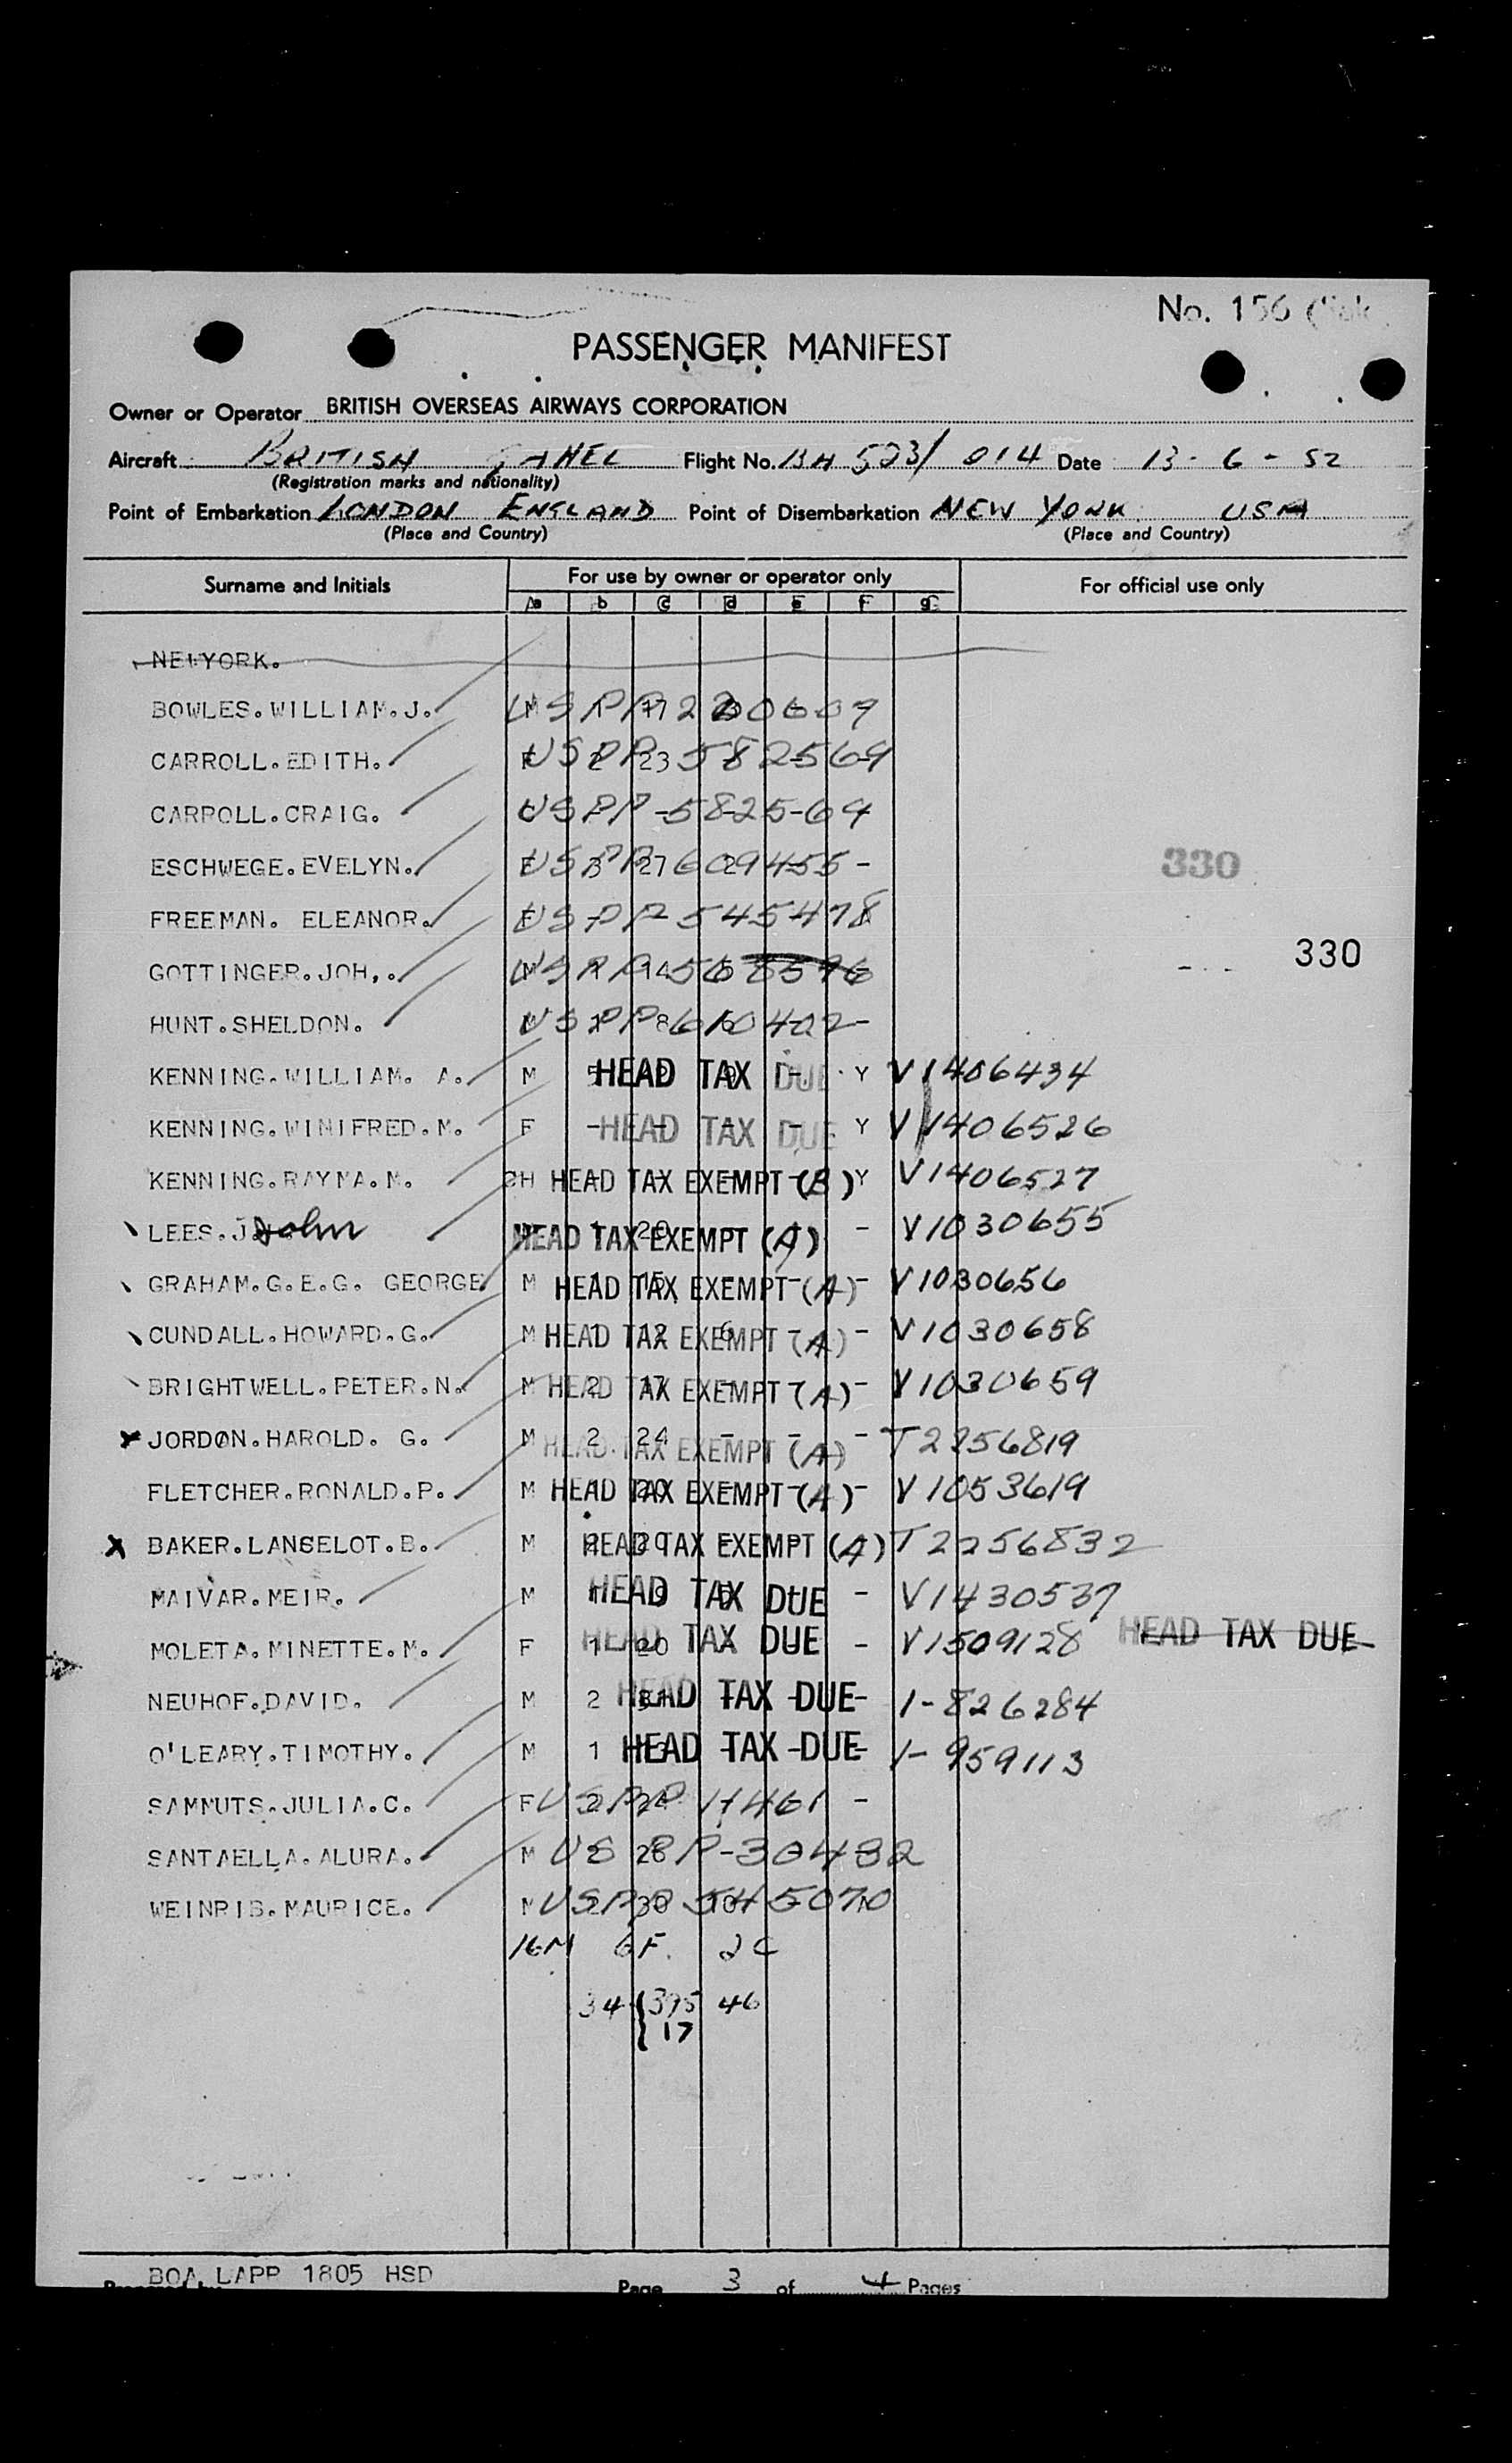 No. 156
PASSENGER MANIFEST
Owner or Operator BRITISH OVERSEAS AIRWAYS CORPORATION
Aircraft BRITISH Flight No. BA 523/014 Date 13-6-52
(Registration marks and nationality)
Point of Embarkation LONDON ENGLAND Point of Disembarkation NEW YORK USA
(Place and Country) (Place and Country)
Surname and Initials For use by owner or operator only For official use only
a b c d e f g
NEWYORK.
BOWLES.WILLIAM.J. M USPP 220609
CARROLL.EDITH. F 2 23 USPP 582569
CARROLL.CRAIG. USPP 582569
ESCHWEGE.EVELYN. F 3 27 2 USPP 609455 - 330
FREEMAN. ELEANOR. F USPP 545478
GOTTINGER.JOH,. M 14 USPP 568596 330
HUNT.SHELDON. M 8 USPP 610402 -
KENNING.WILLIAM. A. M HEAD TAX DUE Y V1406434
KENNING.WINIFRED.M. F - HEAD TAX DUE Y V1406526
KENNING.RAYMA.M. CH HEAD TAX EXEMPT (B) Y V1406527
LEES.J. John M 1 20 HEAD TAX EXEMPT (A) - V1030655
GRAHAM.G.E.G. GEORGE M 1 15 HEAD TAX EXEMPT (A) - V1030656
CUNDALL.HOWARD.G. M 1 12 6 HEAD TAX EXEMPT (A) - V1030658
BRIGHTWELL.PETER.N. M 2 17 HEAD TAX EXEMPT (A) - V1030659
JORDON.HAROLD. G. M 2 24 - - - HEAD TAX EXEMPT (A) T2256819
FLETCHER.RONALD.P. M 1 20 HEAD TAX EXEMPT (A) - V1053619
X BAKER.LANSELOT.B. M 2 29 HEAD TAX EXEMPT (A) T2256832
MAIVAR.MEIR. M HEAD TAX DUE - V1430537
MOLETA.MINETTE.M. F 1 20 HEAD TAX DUE - V1509128 HEAD TAX DUE
NEUHOF.DAVID. M 2 HEAD TAX DUE - I-826284
O'LEARY.TIMOTHY. M 1 HEAD TAX DUE - I-959113
SAMMUTS.JULIA.C. F 2 USPP 11461 -
SANTAELLA.ALURA. M 2 26 US PP-30482
WEINRIB.MAURICE. M 2 30 10 USPP 545070
16M 6F. 2C
34 {395 46
17
BOA LAPP 1805 HSD
Page 3 of 4 Pages